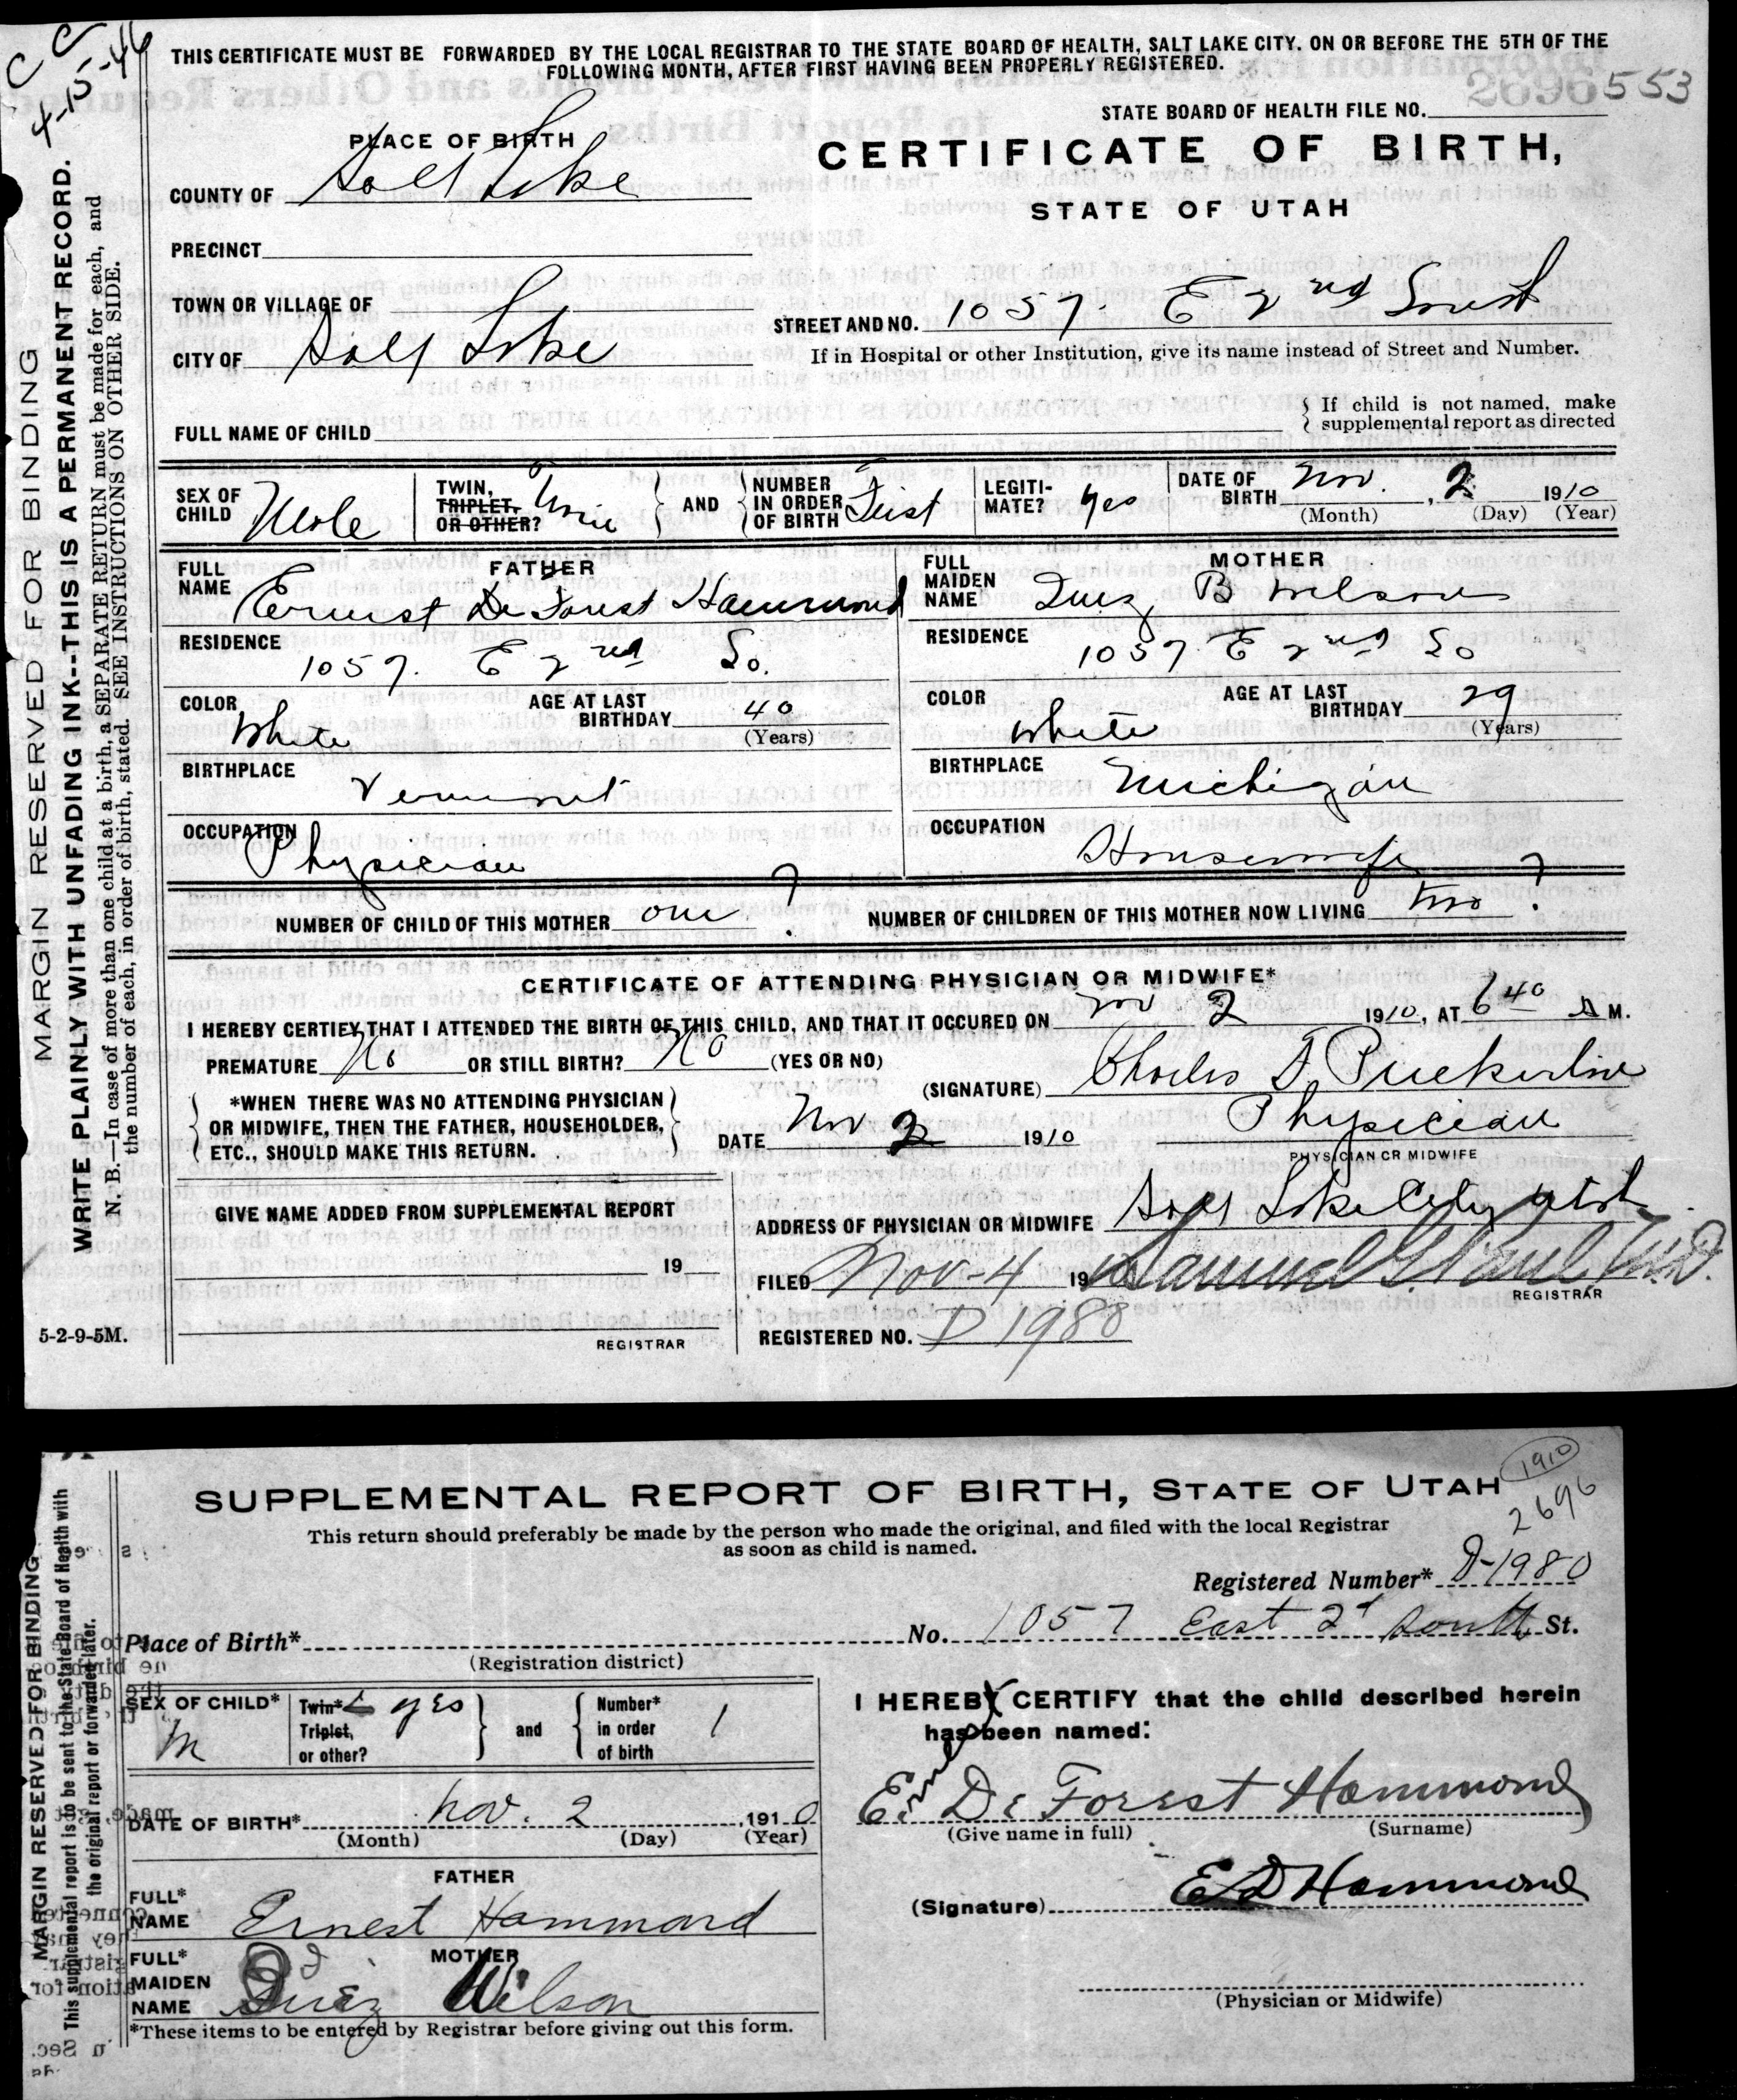 C C
4-15-46
THIS CERTIFICATE MUST BE FORWARDED BY THE LOCAL REGISTRAR TO THE STATE BOARD OF HEALTH, SALT LAKE CITY. ON OR BEFORE THE 5TH OF THE
FOLLOWING MONTH, AFTER FIRST HAVING BEEN PROPERLY REGISTERED.
2696 553
STATE BOARD OF HEALTH FILE NO.
PLACE OF BIRTH
CERTIFICATE OF BIRTH,
COUNTY OF Salt Lake
STATE OF UTAH
PRECINCT
TOWN OR VILLAGE OF
STREET AND NO. 1057 E 2nd South
CITY OF Salt Lake
If in Hospital or other Institution, give its name instead of Street and Number.
FULL NAME OF CHILD
If child is not named, make
supplemental report as directed
SEX OF CHILD Male
TWIN, TRIPLET, OR OTHER? Twin
AND NUMBER IN ORDER OF BIRTH First
LEGITI-MATE? yes
DATE OF BIRTH Nov. , 2 1910
(Month) (Day) (Year)
FATHER
FULL NAME Ernest De Forest Hammond
MOTHER
FULL MAIDEN NAME Inez B Wilson
RESIDENCE 1057. E 2nd So.
RESIDENCE 1057 E 2nd So
COLOR White AGE AT LAST BIRTHDAY 40 (Years)
COLOR White AGE AT LAST BIRTHDAY 29 (Years)
BIRTHPLACE Vermont
BIRTHPLACE Michigan
OCCUPATION Physician
OCCUPATION Housewife
NUMBER OF CHILD OF THIS MOTHER one ? NUMBER OF CHILDREN OF THIS MOTHER NOW LIVING two ?
CERTIFICATE OF ATTENDING PHYSICIAN OR MIDWIFE*
I HEREBY CERTIFY THAT I ATTENDED THE BIRTH OF THIS CHILD, AND THAT IT OCCURED ON Nov 2 1910, AT 6 40 A M.
PREMATURE No OR STILL BIRTH? No (YES OR NO)
(SIGNATURE) Charles F.
*WHEN THERE WAS NO ATTENDING PHYSICIAN
OR MIDWIFE, THEN THE FATHER, HOUSEHOLDER,
ETC., SHOULD MAKE THIS RETURN.
DATE Nov 2 1910
Physician
PHYSICIAN OR MIDWIFE
GIVE NAME ADDED FROM SUPPLEMENTAL REPORT
ADDRESS OF PHYSICIAN OR MIDWIFE Salt Lake City Utah
19
FILED Nov-4 1910 Samuel G. Paul M.D.
REGISTRAR
REGISTRAR
REGISTERED NO. D 1980
5-2-9-5M.
MARGIN RESERVED FOR BINDING
WRITE PLAINLY WITH UNFADING INK--THIS IS A PERMANENT RECORD.
N. B.—In case of more than one child at a birth, a SEPARATE RETURN must be made for each, and
the number of each, in order of birth, stated. SEE INSTRUCTIONS ON OTHER SIDE.
1910
2696
SUPPLEMENTAL REPORT OF BIRTH, STATE OF UTAH
This return should preferably be made by the person who made the original, and filed with the local Registrar
as soon as child is named.
Registered Number* D-1980
Place of Birth* No. 1057 East 2d South St.
(Registration district)
SEX OF CHILD* M
Twin* Triplet, or other? yes
and Number* in order of birth 1
I HEREBY CERTIFY that the child described herein
has been named:
Ernest
E. De Forest Hammond
(Give name in full) (Surname)
DATE OF BIRTH* Nov. 2, 1910
(Month) (Day) (Year)
FATHER
FULL* NAME Ernest Hammond
(Signature) E D Hammond
MOTHER
FULL* MAIDEN NAME Inez Wilson
(Physician or Midwife)
*These items to be entered by Registrar before giving out this form.
MARGIN RESERVED FOR BINDING
This supplemental report is to be sent to the State Board of Health with
the original report or forwarded later.